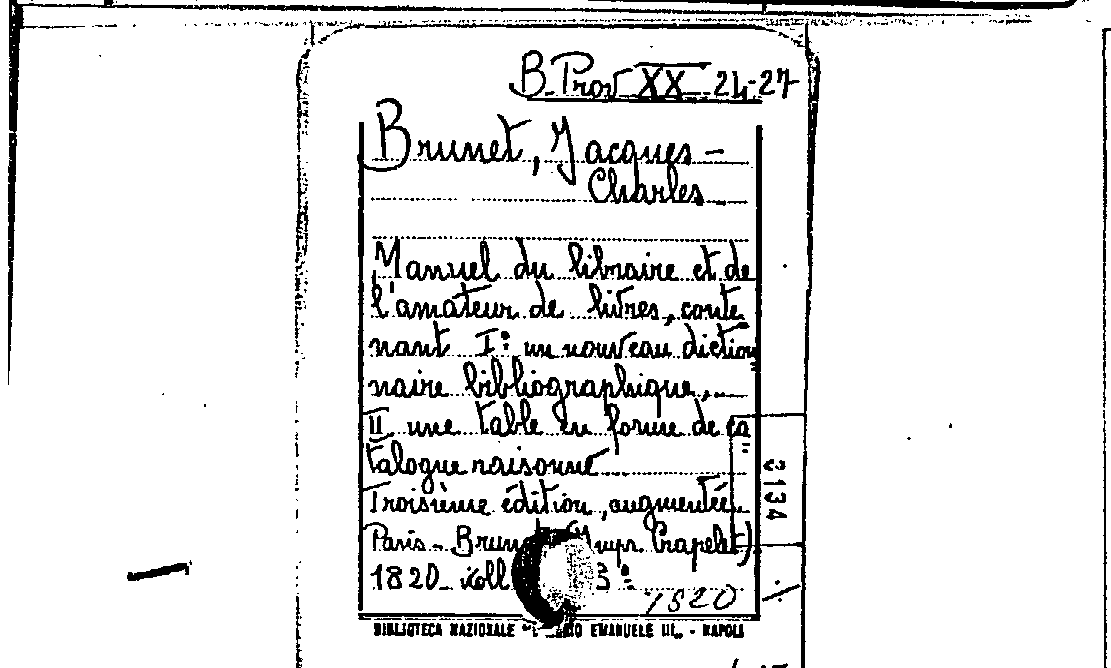 B. Prov XX 24-27
Brunet, Jacques-
Charles
Manuel du libraire et de
l'amateur de livres, conte
nant I°: un nouveau diction
naire bibliographique,
II une table en forme de ca
talogue raisonné
Troisième édition, augmentée
Paris - Brunet (impr. Crapelet)
1820 3°
1820
2134
BIBLIOTECA NAZIONALE EMANUELE III - NAPOLI